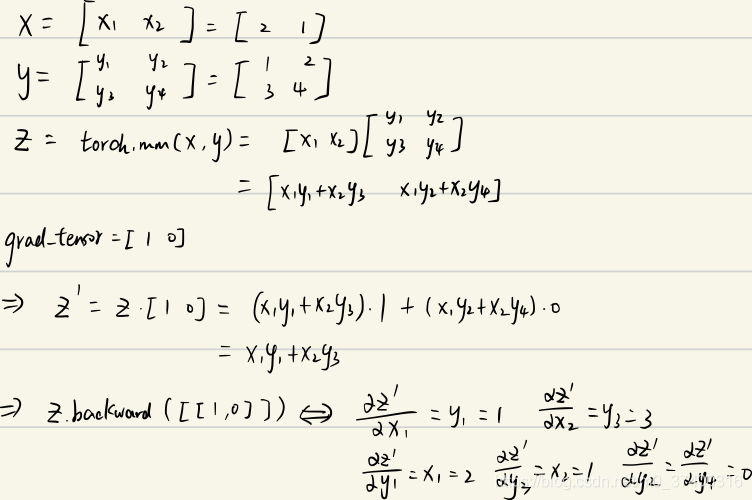 x = [ x₁ x₂ ] = [ 2 1 ]
y = [ y₁ y₂ y₃ y₄ ] = [ 1 2 3 4 ]
z = torch.mm(x,y) = [x₁ x₂] [ y₁ y₂ y₃ y₄ ]
= [x₁y₁+x₂y₃ x₁y₂+x₂y₄]
grad_tensor = [ 1 0 ]
⇒ z' = z · [ 1 0 ] = (x₁y₁+x₂y₃)·1 + (x₁y₂+x₂y₄)·0
= x₁y₁+x₂y₃
⇒ z.backward([[1,0]]) ⇔ ∂z'/∂x₁ = y₁ = 1 ∂z'/∂x₂ = y₃ = 3
∂z'/∂y₁ = x₁ = 2 ∂z'/∂y₃ = x₂ = 1 ∂z'/∂y₂ = ∂z'/∂y₄ = 0